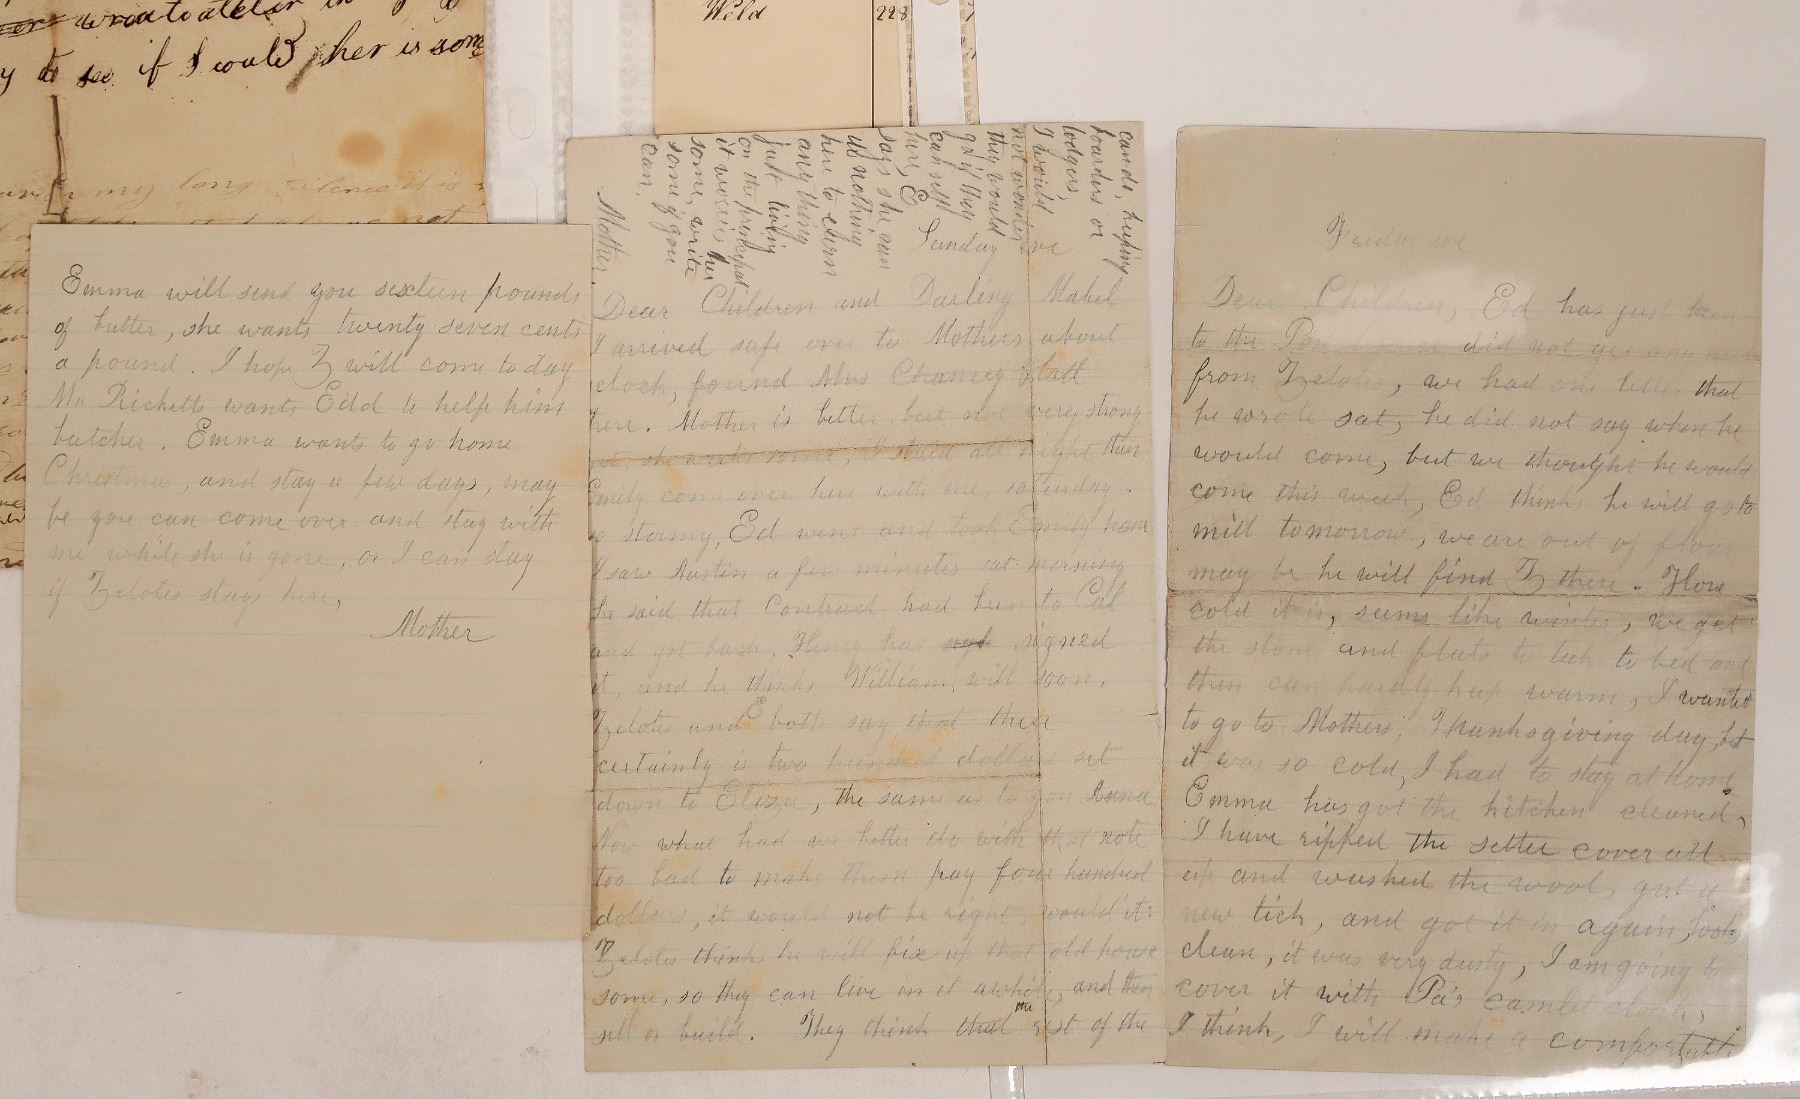 wrote a letter in
to see if I would her is some
Weld 228
my long silence it is
not
Emma will send you sixteen pounds
of butter, she wants twenty seven cents
a pound. I hope Z will come to day
Mr Ricketts wants Edd to help him
butcher. Emma wants to go home
Christmas, and stay a few days, may
be you can come over and stay with
me while she is gone, or I can stay
if Zelotes stays here,
Mother
cands, keeping
boarders or
lodgers,
I would
not wonder
they would
go if they
can sell
here, E
says she can
us nothing
here to earn
any thing
just living
on the principal
it worries her
some, write
some if you
can,
Mother
Sunday eve
Dear Children and Darling Mabel
I arrived safe over to Mothers about
clock, found Mrs Chancey Hall
here. Mother is better but not very strong
yet, she works some, I staid all night then
Emily come over here with me, saturday.
so stormy, Ed went and took Emily home
I saw Austin a few minutes sat morning
he said that Contract had been to Cal
and got back, Henry has signed
it, and he thinks William, will soon.
Zelotes and E both say that there
certainly is two hundred dollars set
down to Eliza, the same as to you
Now what had we better do with that note
too bad to make them pay four hundred
dollars, it would not be right, would it.
Zelotes thinks he will fix up that old house
some, so they can live in it awhile, and then
sell or build. They think that the rest of the
Friday eve
Dear Children, Ed has just been
to the did not get any
from Zelotes, we had one letter that
he wrote sat, he did not say when he
would come, but we thought he would
come this week, Ed thinks he will go to
mill tomorrow, we are out of flour
may be he will find Z there. How
cold it is, seems like winter, we get
the stone and flats to take to bed and
then can hardly keep warm, I wanted
to go to Mothers, Thanksgiving day, but
it was so cold, I had to stay at home,
Emma has got the kitchen cleaned,
I have ripped the settee cover all
up and washed the wool, got a
new tick, and got it in again, looks
clean, it was very dusty, I am going to
cover it with Pa's camlet cloak,
I think, I will make a comfortable